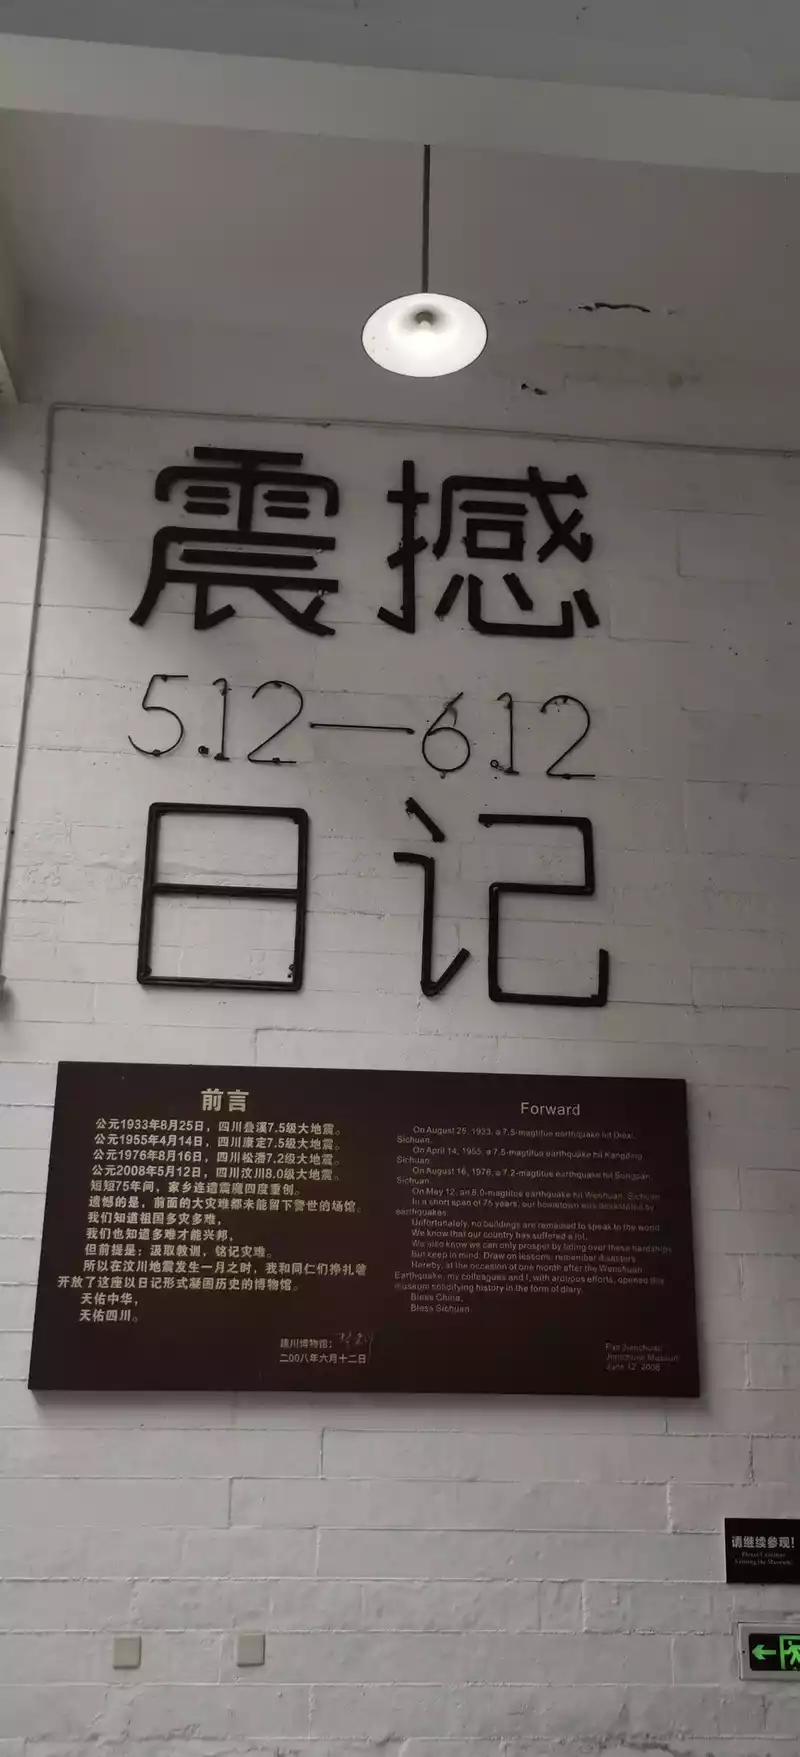 震撼
5.12—6.12
日记
前言
公元1933年8月25日，四川叠溪7.5级大地震。
公元1955年4月14日，四川康定7.5级大地震。
公元1976年8月16日，四川松潘7.2级大地震。
公元2008年5月12日，四川汶川8.0级大地震。
短短75年间，家乡连遭震魔四度重创。
遗憾的是，前面的大灾难都未能留下警世的场馆。
我们知道祖国多灾多难，
我们也知道多难才能兴邦，
但前提是：汲取教训，铭记灾难。
所以在汶川地震发生一月之时，我和同仁们挣扎着
开放了这座以日记形式凝固历史的博物馆。
天佑中华，
天佑四川。
建川博物馆：
二00八年六月十二日
Forward
On August 25, 1933, a 7.5-magtitue earthquake hit Diexi,
Sichuan.
On April 14, 1955, a 7.5-magtitue earthquake hit Kangding,
Sichuan.
On August 16, 1976, a 7.2-magtitue earthquake hit Songpan,
Sichuan.
On May 12, an 8.0-magtitue earthquake hit Wenhuan, Sichuan.
In a short span of 75 years, our hometown was devastated by
earthquakes.
Unfortunately, no buildings are remained to speak to the world.
We know that our country has suffered a lot.
We also know we can only prosper by tiding over these hardships.
But keep in mind: Draw on lessons; remember disasters.
Hereby, at the occasion of one month after the Wenchuan
Earthquake, my colleagues and I, with arduous efforts, opened this
museum solidifying history in the form of diary.
Bless China,
Bless Sichuan.
Fan Jianchuan
Jianchuan Museum
June 12, 2008
请继续参观！